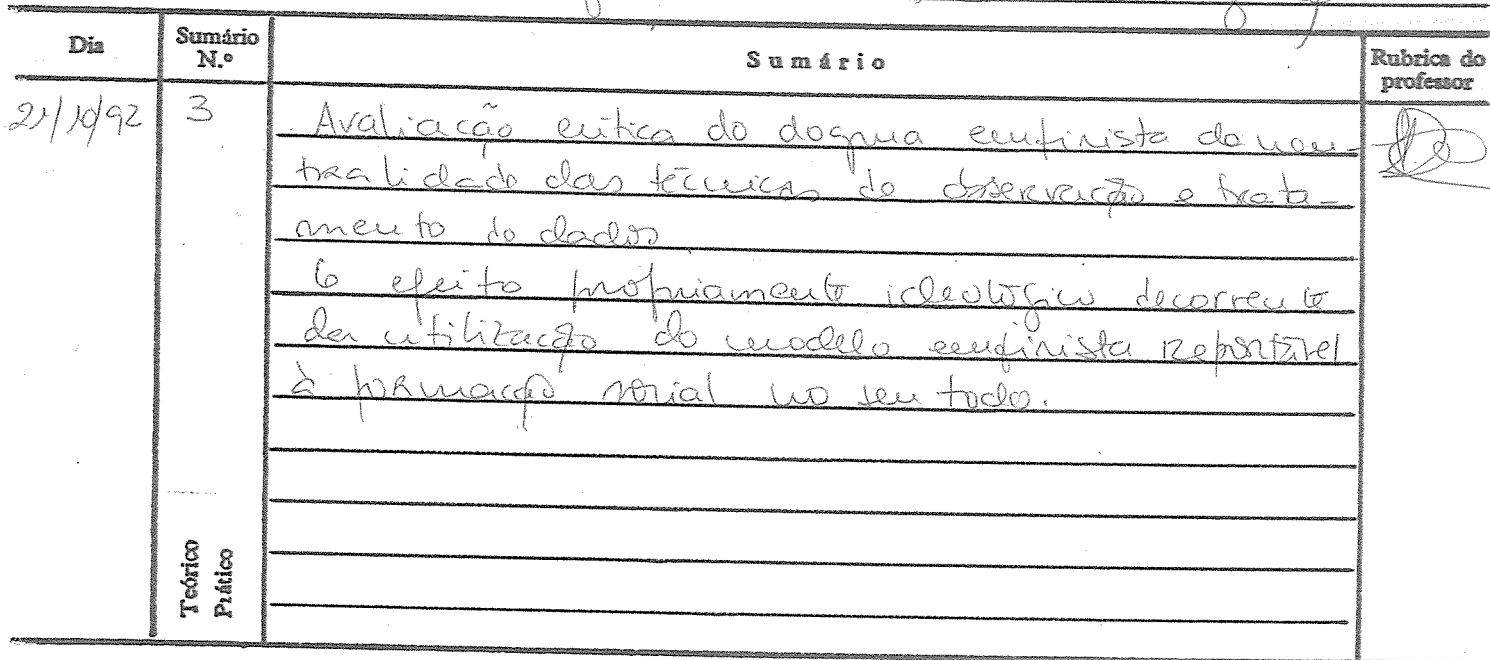 Dia Sumário N.º Sumário Rubrica do professor
21/10/92 3 Avaliação crítica do dogma empirista da neu-
tralidade das técnicas de observação e trata-
mento de dados
O efeito propriamente ideológico decorrente
da utilização do modelo empirista reportável
à formação social no seu todo.
Teórico
Prático